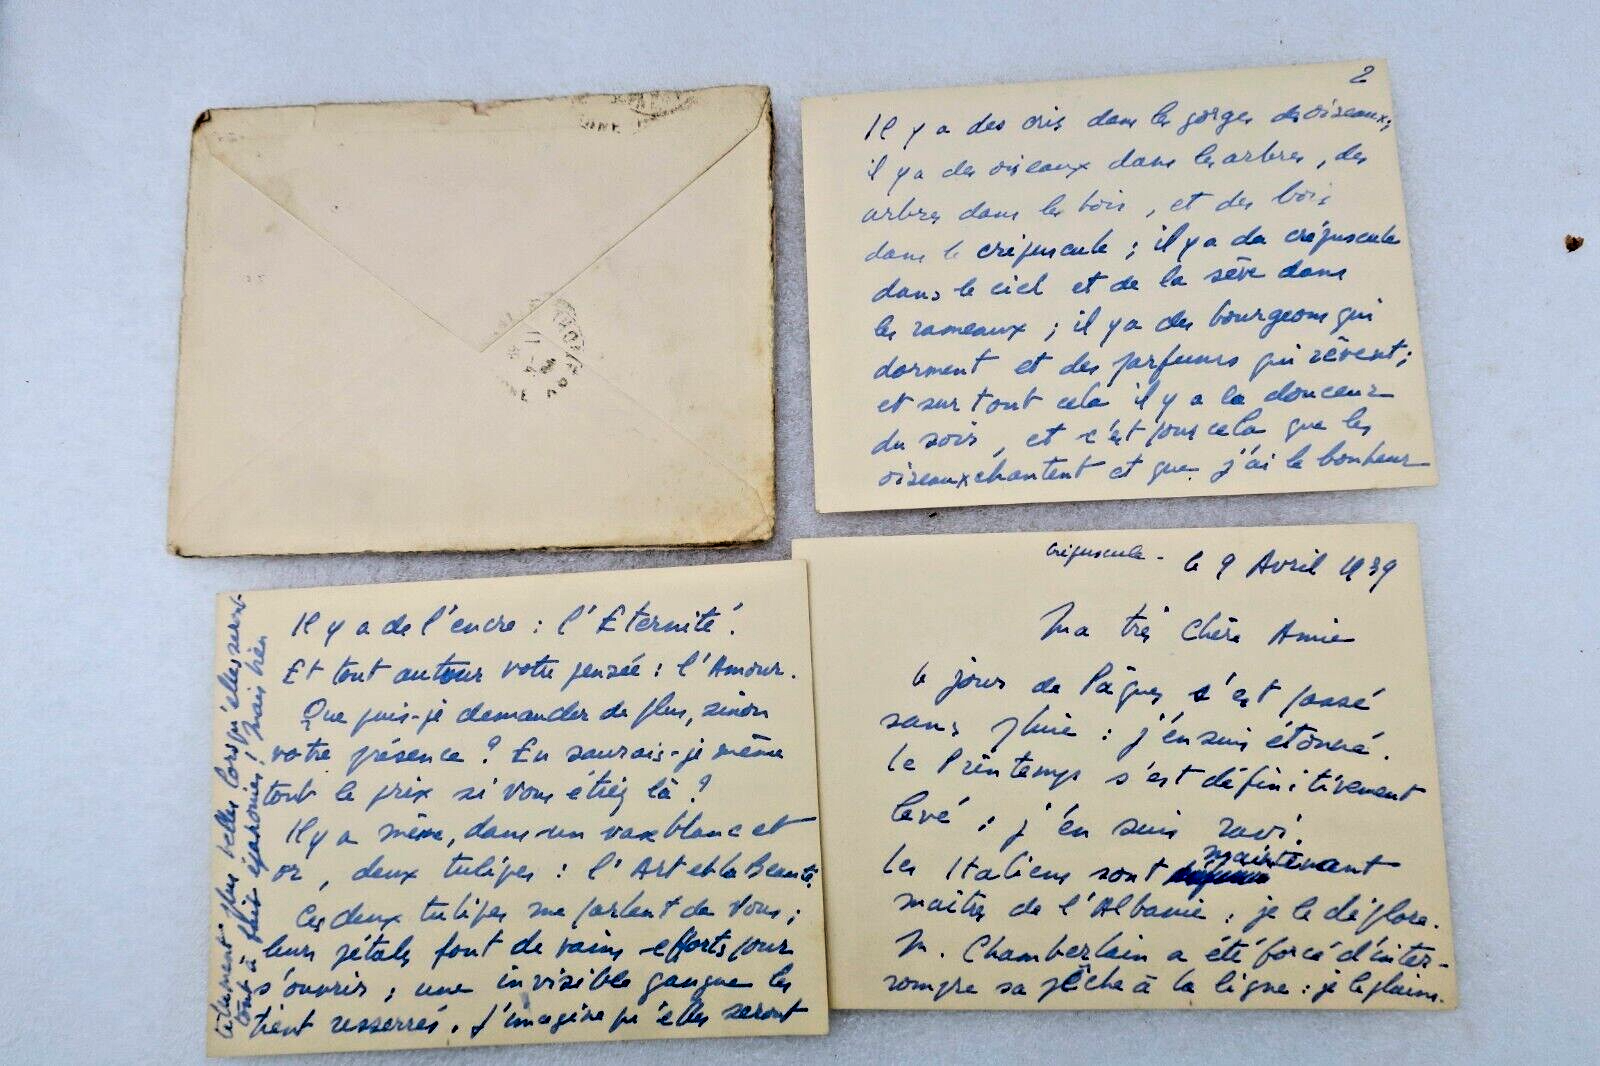 crépuscule - le 9 Avril 1939
Ma très chère Amie
le jour de Pâques s'est passé
sans pluie : j'en suis étonné.
Le Printemps s'est définitivement
levé ; j'en suis ravi.
Les Italiens sont maintenant
maîtres de l'Albanie ; je le déplore.
M. Chamberlain a été forcé d'inter-
rompre sa pêche à la ligne : je le plains.
2
Il y a des cris dans les gorges des oiseaux ;
il y a des oiseaux dans les arbres, des
arbres dans les bois, et des bois
dans le crépuscule ; il y a du crépuscule
dans le ciel et de la sève dans
les rameaux ; il y a des bourgeons qui
dorment et des parfums qui rêvent ;
et sur tout cela il y a la douceur
du soir, et c'est pour cela que les
oiseaux chantent et que j'ai le bonheur
Il y a de l'encre : l'Eternité.
Et tout autour votre pensée : l'Amour.
Que puis-je demander de plus, sinon
votre présence ? En saurais-je même
tout le prix si vous étiez là ?
Il y a même, dans un vase blanc et
or, deux tulipes : l'Art et la Beauté.
Ces deux tulipes me parlent de vous ;
leurs pétales font de vains efforts pour
s'ouvrir ; une invisible gangue les
tient resserrés. J'imagine qu'elles seront
plus belles lorsqu'elles seront
tout à fait épanouies ! mais bien